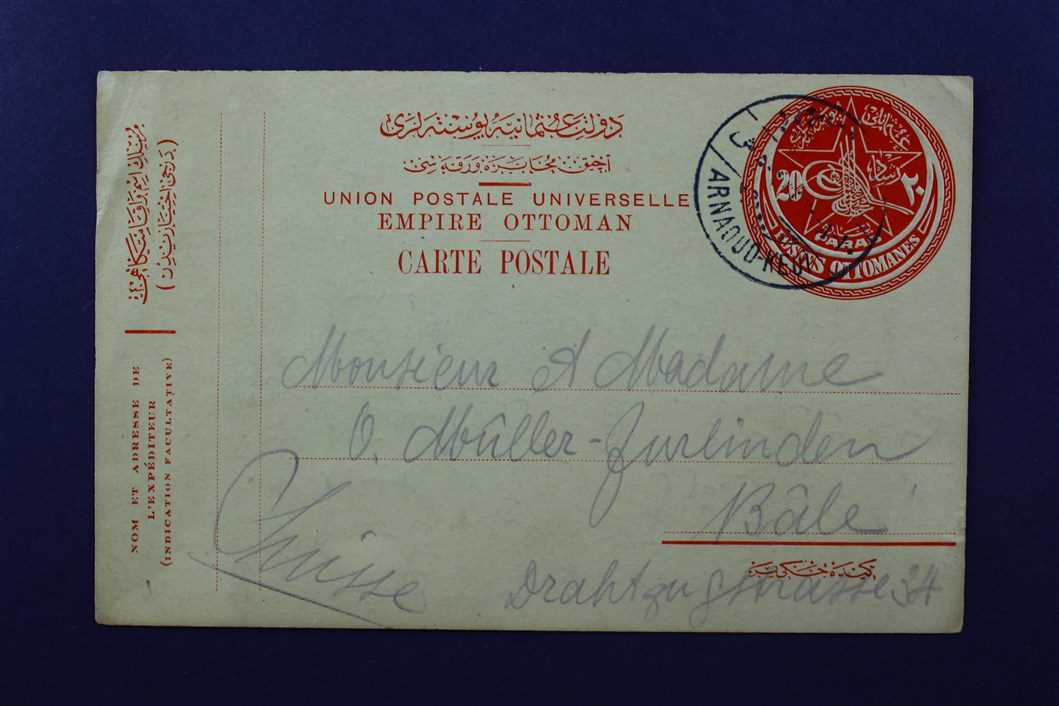 دولت عثمانیه پوسته لری
آچیق مخابره ورقه سی
UNION POSTALE UNIVERSELLE
EMPIRE OTTOMAN
CARTE POSTALE
20
٢٠
PARAS
POSTES OTTOMANES
ARNAOUD-KEUÏ
NOM ET ADRESSE DE
L'EXPÉDITEUR
(INDICATION FACULTATIVE)
Monsieur & Madame
O. Müller-Zurlinden
Bâle
Suisse
Drahtzugstrasse 34